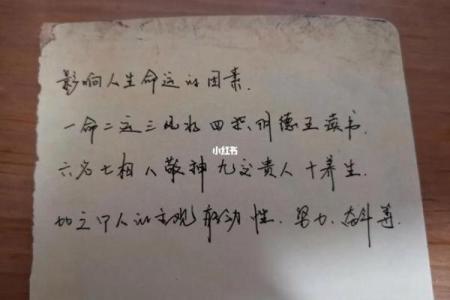 影响人生命运的因素.
一命二运三风水四积阴德五读书.
六名七相八敬神九交贵人十养生.
小红书
加之个人的主观能动性.努力.奋斗等.